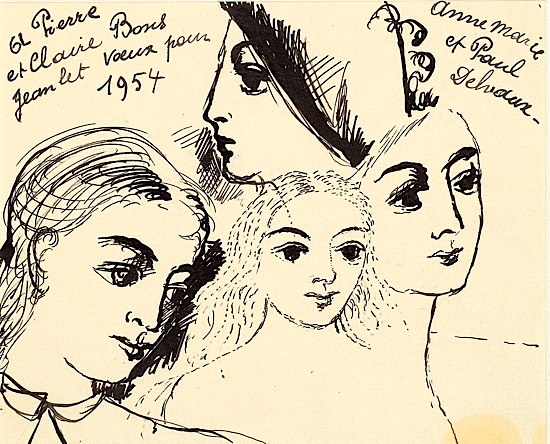 A Pierre
et Claire Bons
Jeanlet vœux pour
1954
Anne marie
et Paul
Delvaux-